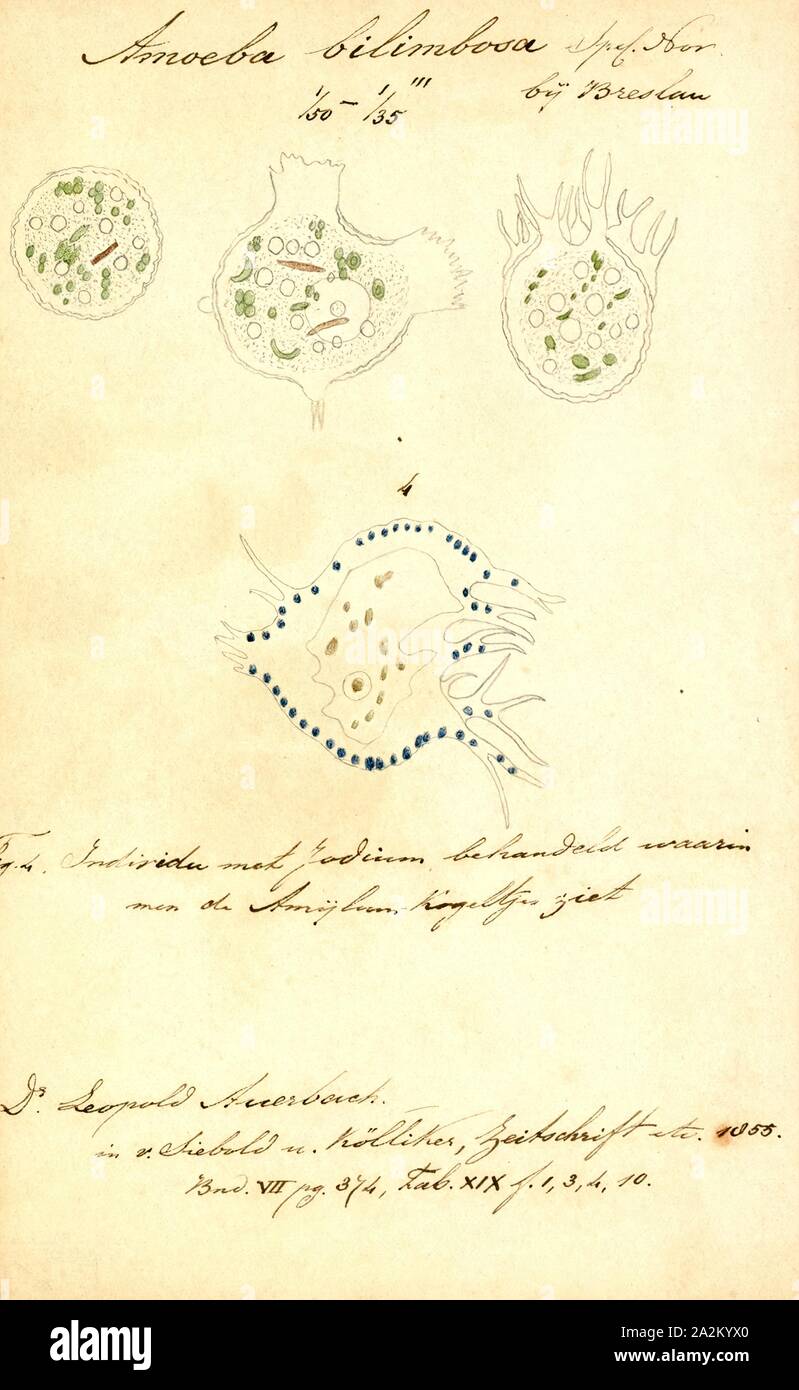 Amoeba bilimbosa Spec. Nov.
1/50 – 1/35 ''' bij Breslau
4
Fig. 4. Individu met Jodium behandeld waarin
men de Amijlum-Kogeltjes ziet
Dr. Leopold Auerbach.
in v. Siebold u. Kölliker, Zeitschrift etc. 1855.
Bnd. VII pg. 374, Tab. XIX f. 1, 3, 4, 10.
alamy
Image ID: 2A2KYX0
www.alamy.com